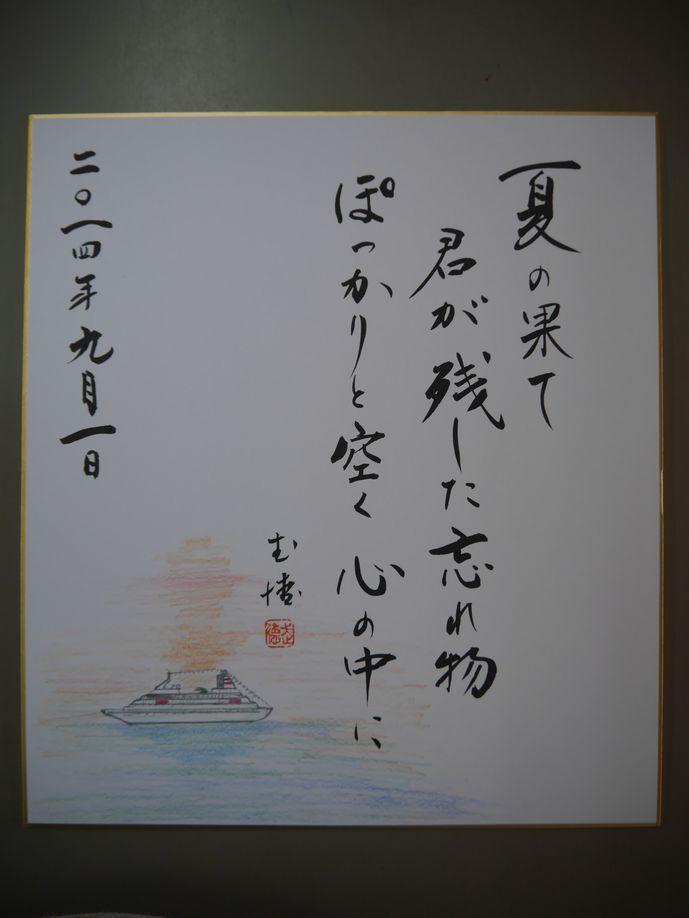 夏の果て
君が残した忘れ物
ぽっかりと空く心の中に
二〇一四年九月一日